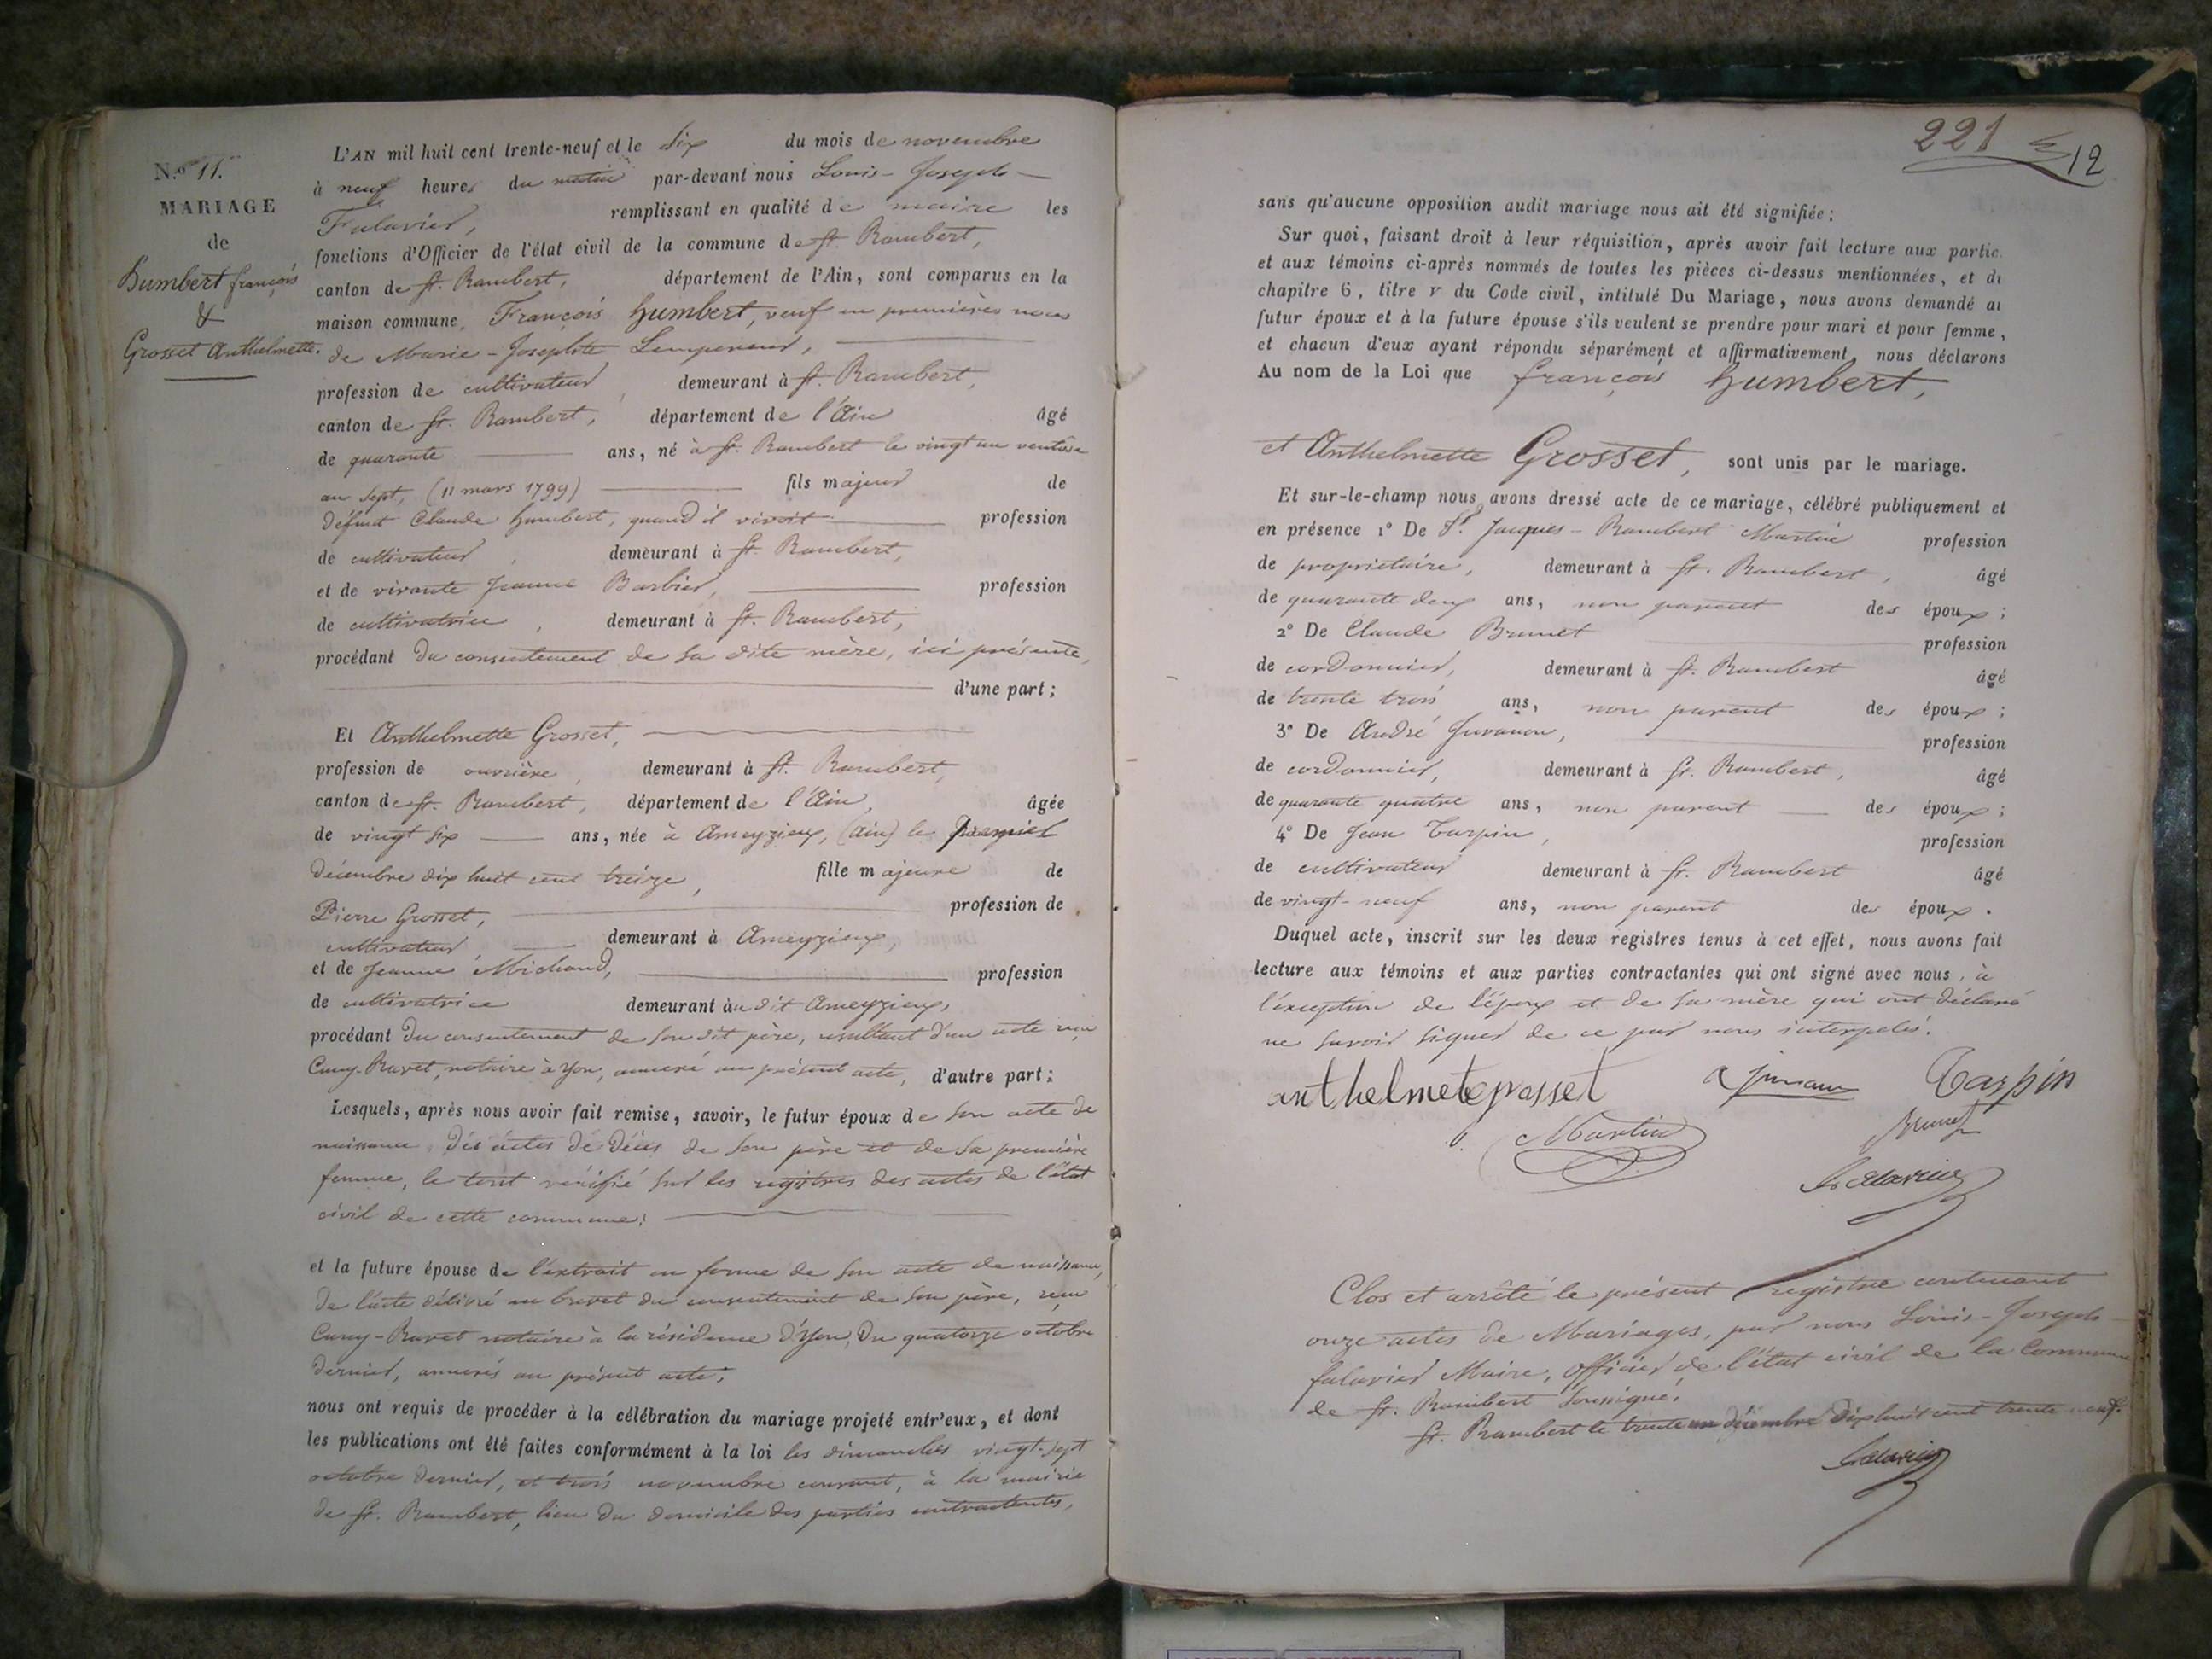 N.º 11.
MARIAGE
de
Humbert françois
&
Grosset Anthelmette.
L'AN mil huit cent trente-neuf et le six du mois de novembre
à neuf heures du matin par-devant nous Louis-Joseph
Falavier, remplissant en qualité de maire les
fonctions d'Officier de l'état civil de la commune de St. Rambert,
canton de St. Rambert, département de l'Ain, sont comparus en la
maison commune, François humbert, veuf en premières noces
de Marie-Josephte Lempereur,
profession de cultivateur, demeurant à St. Rambert,
canton de St. Rambert, département de l'Ain âgé
de quarante ans, né à St. Rambert le vingt un ventôse
an sept, (11 mars 1799) fils majeur de
défunt Claude humbert, quand il vivoit profession
de cultivateur, demeurant à St. Rambert,
et de vivante Jeanne Barbier, profession
de cultivatrice, demeurant à St. Rambert,
procédant du consentement de sa dite mère, ici présente,
d'une part ;
Et Anthelmette Grosset,
profession de ouvrière, demeurant à St. Rambert,
canton de St. Rambert, département de l'Ain, âgée
de vingt six ans, née à Ameyzieux, (ain) le premier
décembre dix huit cent treize, fille majeure de
Pierre Grosset, profession de
cultivateur, demeurant à Ameyzieux,
et de Jeanne Michaud, profession
de cultivatrice demeurant au dit Ameyzieux,
procédant du consentement de son dit père, résultant d'un acte reçu
Cuny-Ravet, notaire à Yon, annexé au présent acte, d'autre part ;
Lesquels, après nous avoir fait remise, savoir, le futur époux de son acte de
naissance, des actes de décès de son père et de sa première
femme, le tout vérifié sur les registres des actes de l'état
civil de cette commune ;
et la future épouse de l'extrait en forme de son acte de naissance,
de l'acte délivré en brevet du consentement de son père, reçu
Cuny-Ravet notaire à la résidence d'Yon, du quatorze octobre
dernier, annexés au présent acte,
nous ont requis de procéder à la célébration du mariage projeté entr'eux, et dont
les publications ont été faites conformément à la loi les dimanches vingt-sept
octobre dernier, et trois novembre courant, à la mairie
de St. Rambert, lieu du domicile des parties contractantes,
221
12
sans qu'aucune opposition audit mariage nous ait été signifiée ;
Sur quoi, faisant droit à leur réquisition, après avoir fait lecture aux partie
et aux témoins ci-après nommés de toutes les pièces ci-dessus mentionnées, et du
chapitre 6, titre v du Code civil, intitulé Du Mariage, nous avons demandé au
futur époux et à la future épouse s'ils veulent se prendre pour mari et pour femme,
et chacun d'eux ayant répondu séparément et affirmativement, nous déclarons
Au nom de la Loi que françois humbert,
et Anthelmette Grosset, sont unis par le mariage.
Et sur-le-champ nous avons dressé acte de ce mariage, célébré publiquement et
en présence 1º De Sr. Jacques-Rambert Martin profession
de propriétaire, demeurant à St. Rambert, âgé
de quarante deux ans, non parent des époux ;
2º De Claude Brunet profession
de cordonnier, demeurant à St. Rambert âgé
de trente trois ans, non parent des époux ;
3º De André Juvanon, profession
de cordonnier, demeurant à St. Rambert, âgé
de quarante quatre ans, non parent des époux ;
4º De Jean Tarpin, profession
de cultivateur demeurant à St. Rambert âgé
de vingt-neuf ans, non parent des époux.
Duquel acte, inscrit sur les deux registres tenus à cet effet, nous avons fait
lecture aux témoins et aux parties contractantes qui ont signé avec nous, à
l'exception de l'époux et de sa mère qui ont déclaré
ne savoir signer de ce par nous interpelés.
anthelmete grosset Tarpin
Martin Brunet
Falavier
Clos et arrêté le présent registre contenant
onze actes de Mariages, par nous Louis-Joseph
falavier Maire, officier de l'état civil de la Commune
de St. Rambert soussigné.
St. Rambert le trente un décembre dix huit cent trente neuf.
Falavier